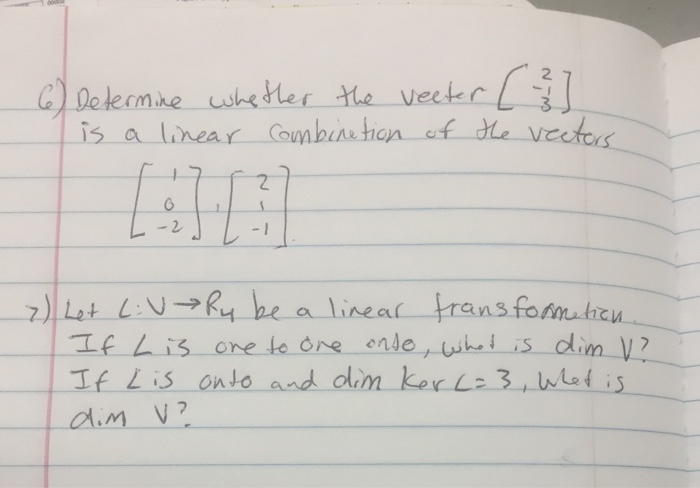 6) Determine whether the vector [2 -1 3]
is a linear combination of the vectors
[1 0 -2], [2 1 -1].
7) Let L: V → R4 be a linear transformation.
If L is one to one onto, what is dim V?
If L is onto and dim ker L = 3, what is
dim V?